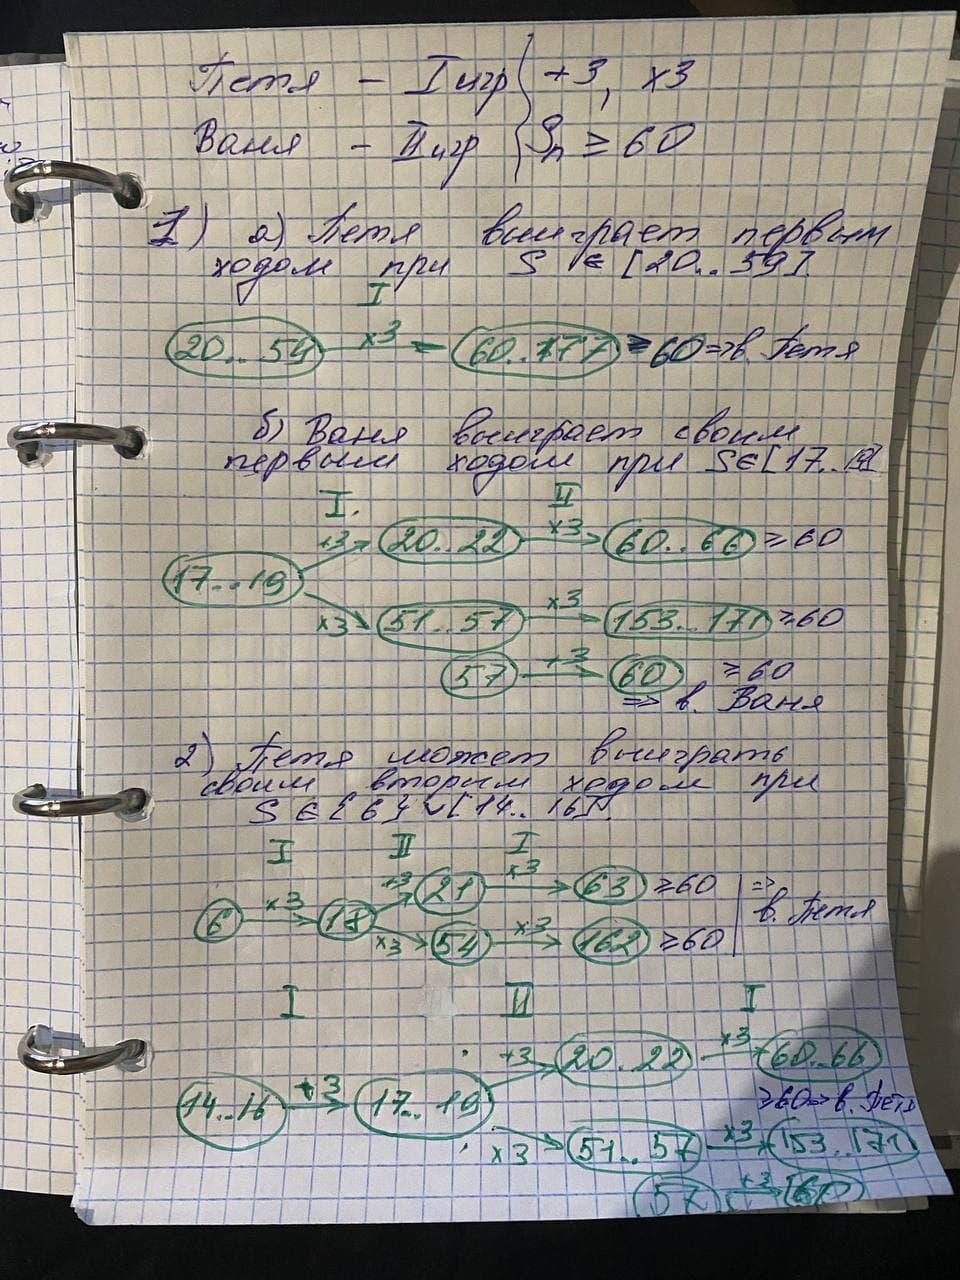 Петя - I игр { +3, x3
Ваня - II игр { Sn ≥ 60
1) а) Петя выиграет первым
ходом при S ∈ [20..59]
I
20...54 x3 60..177 ≥ 60 => в. Петя
б) Ваня выиграет своим
первым ходом при S∈[17..19]
I. II
+3 20..22 x3 60..66 ≥60
17...19
x3 51..57 x3 153..171 ≥60
57 +3 60 ≥60
=> в. Ваня
2) Петя может выиграть
своим вторым ходом при
S ∈ {6} ∪ [14..16].
I II I
+3 21 x3 63 ≥60 =>
6 x3 18 в. Петя
x3 54 x3 162 ≥60
I II I
+3 20..22 x3 60..66
14..16 +3 17..19 ≥60 => в. Петя
x3 51..57 x3 153..171
57 +3 60